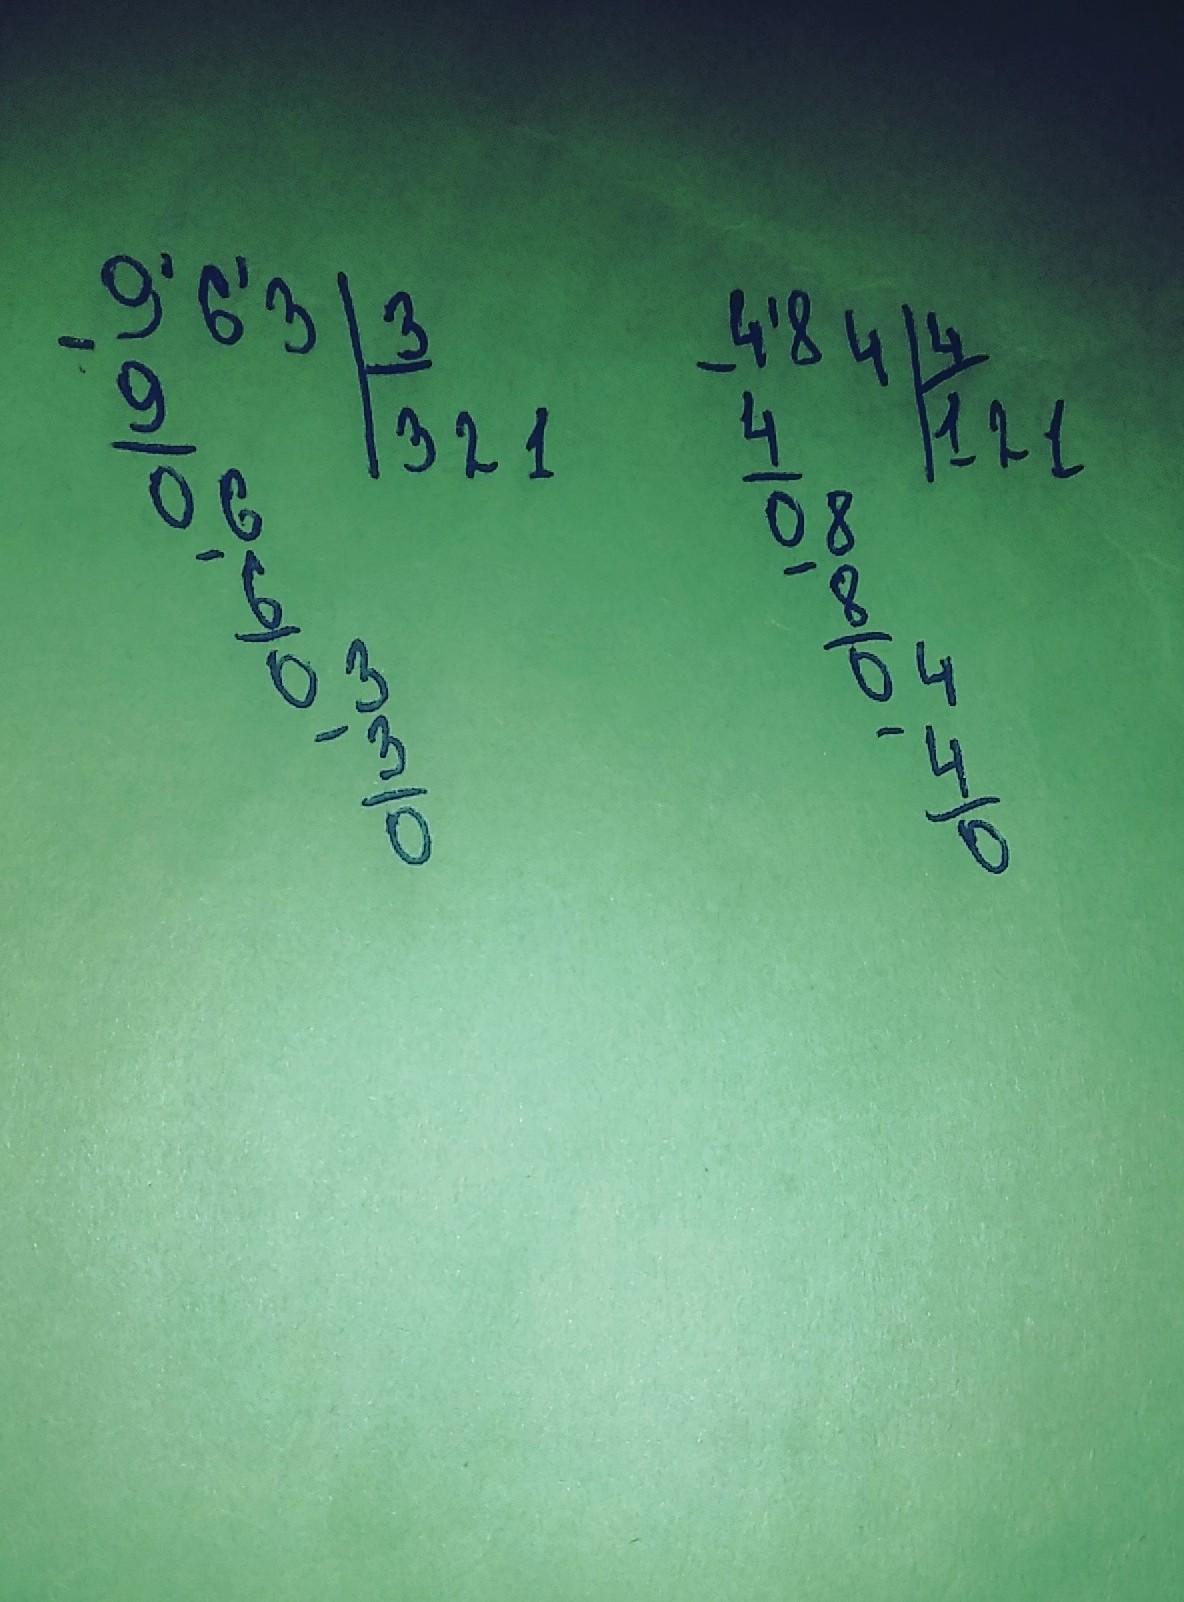 9'6'3 | 3
- 9
321
06
- 6
03
- 3
0
4'84 | 4
- 4
121
08
- 8
04
- 4
0